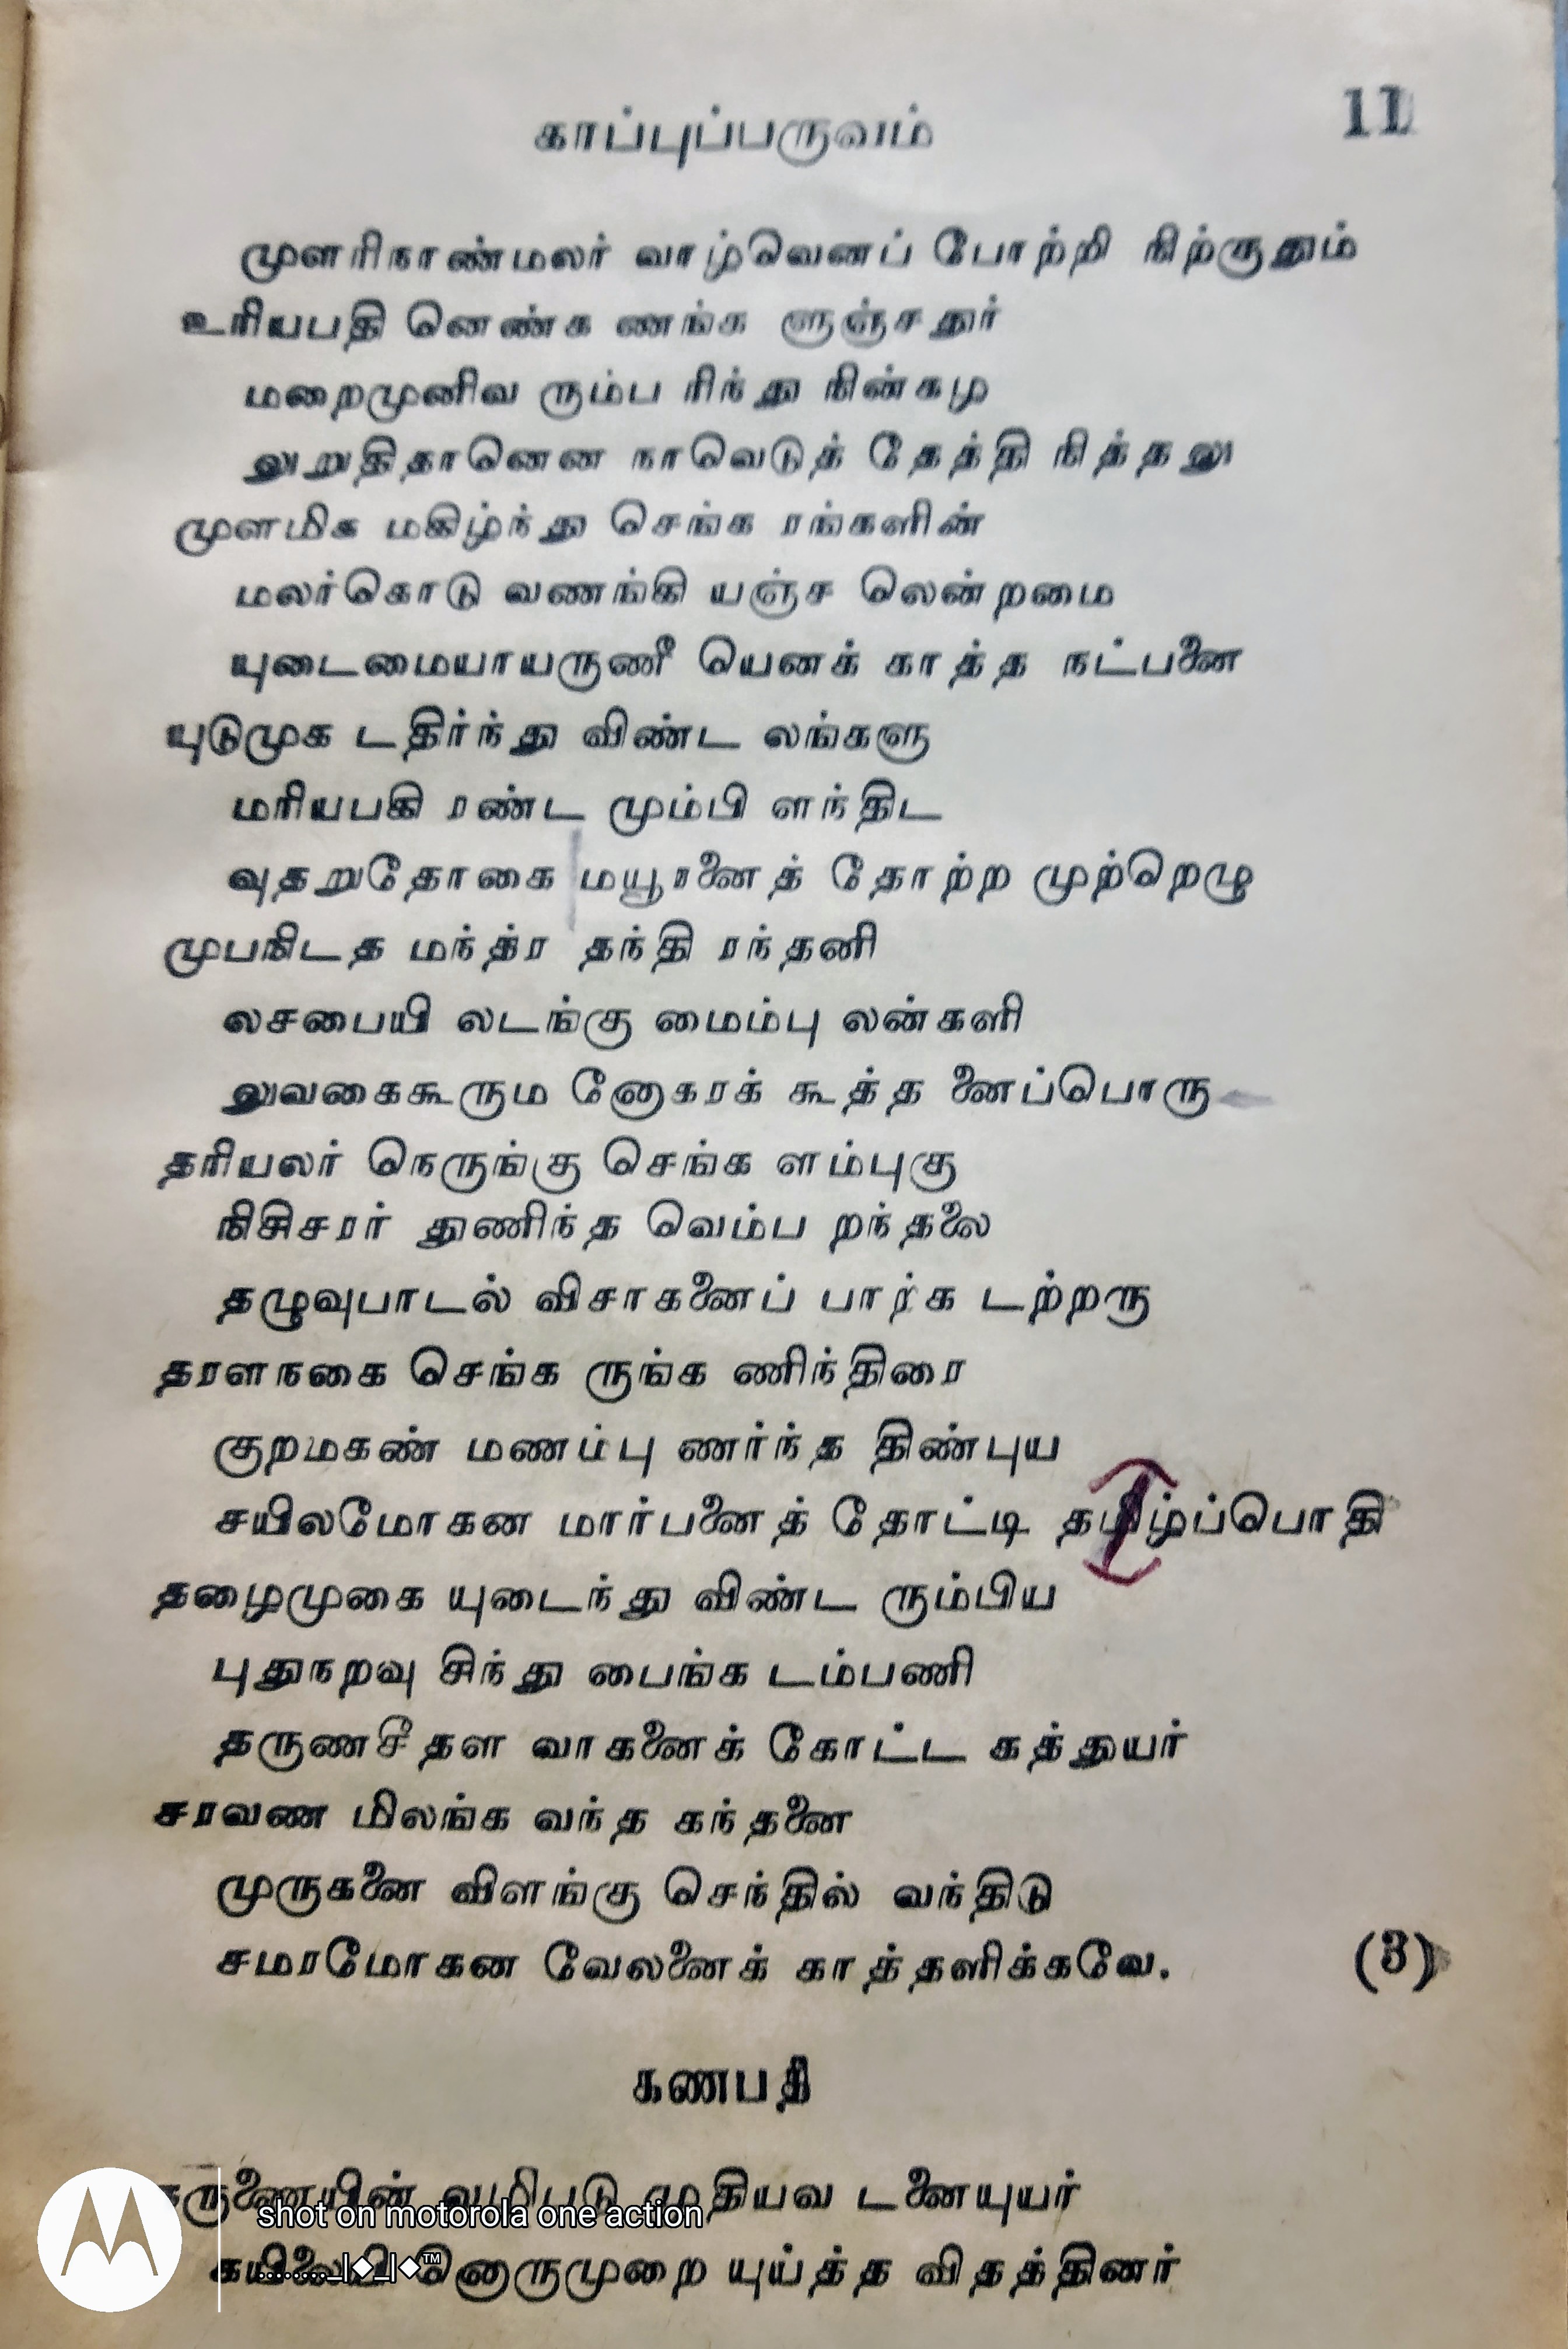 காப்புப்பருவம்
11
முளரிநாண்மலர் வாழ்வெனப் போற்றி நிற்குதும்
உரியபதி னெண்க ணங்க ளுஞ்சதுர்
மறைமுனிவ ரும்ப ரிந்து நின்கழ
லுறுதிதானென நாவெடுத் தேத்தி நித்தலு
முளமிக மகிழ்ந்து செங்க ரங்களின்
மலர்கொடு வணங்கி யஞ்ச லென்றமை
யுடைமையாயருணீ யெனக் காத்த நட்பனை
யுடுமுக டதிர்ந்து விண்ட லங்களு
மரியபகி ரண்ட மும்பி ளந்திட
வுதறுதோகை மயூரனைத் தோற்ற முற்றெழு
முபநிடத மந்த்ர தந்தி ரந்தனி
லசபையி லடங்கு மைம்பு லன்களி
லுவகைகூரும னோகரக் கூத்த னைப்பொரு
தரியலர் நெருங்கு செங்க ளம்புகு
நிசிசரர் துணிந்த வெம்ப றந்தலை
தழுவுபாடல் விசாகனைப் பார்க டற்றரு
தரளநகை செங்க ருங்க ணிந்திரை
குறமகண் மணம்பு ணர்ந்த திண்புய
சயிலமோகன மார்பனைத் தோட்டி தமிழ்ப்பொதி
தழைமுகை யுடைந்து விண்ட ரும்பிய
புதுநறவு சிந்து பைங்க டம்பணி
தருணசீதள வாகனைக் கோட்ட கத்துயர்
சரவண மிலங்க வந்த கந்தனை
முருகனை விளங்கு செந்தில் வந்திடு
சமரமோகன வேலனைக் காத்தளிக்கவே.
(3)
கணபதி
வழிபடு முதியவ டனையுயர்
னொருமுறை யுய்த்த விதத்தினர்
shot on motorola one action